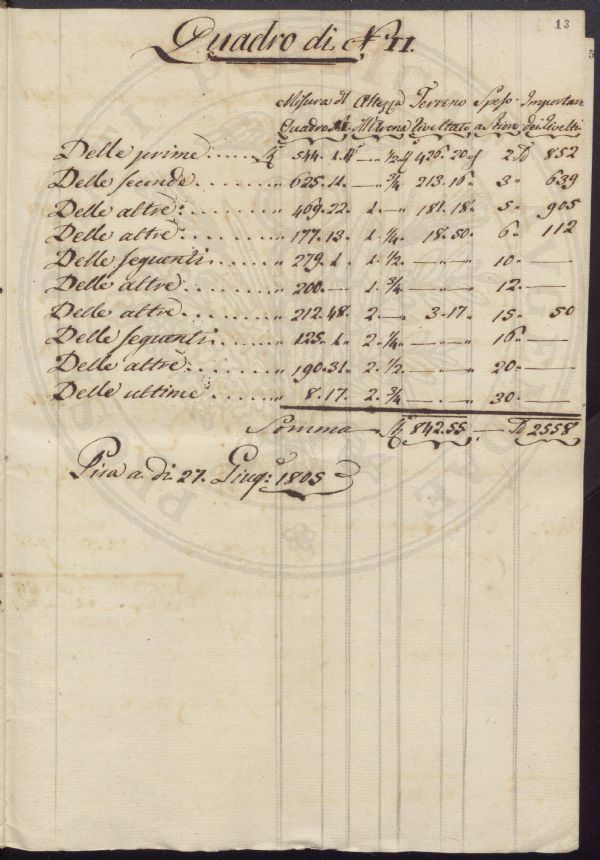 13
Quadro di N.° II.
Misura di Altezza Terreno Spesa Importare
Quadro Livellato a Stioro dei Livelli
Delle prime ..... 544. 1. — 1/2 426. 20 2 852
Delle seconde ........ " 625. 11. — " 3/4 213. 16 " 3 " 639
Delle altre ........ " 469. 22. 1. — " 181. 18 " 5 " 905
Delle altre ........ " 177. 13. 1. 1/4 " 18. 50. 6 " 112
Delle seguenti ....... " 279. 1. 1. 1/2 — " — " 10 " —
Delle altre ........ " 200. — 1. 3/4 — " — " 12. —
Delle altre ........ " 212. 48. 2. — " 3. 17 " 15 " 50
Delle seguenti ....... " 125. 1. 2. 1/4 " — " — " 16 " —
Delle altre ........ " 190. 31. 2. 1/2 — " — " 20 " —
Delle ultime ........ " 8. 17. 2. 3/4 — . — " 30. —
Somma — 842. 55. — 2558
Pisa a di 27. Giug:° 1805